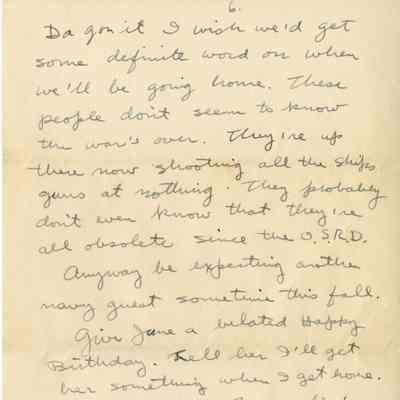 6.
Da gon it I wish we'd get
some definite word on when
we'll be going home. These
people don't seem to know
the war's over. They're up
there now shooting all the ships
guns at nothing. They probably
don't even know that they're
all obsolete since the O.S.R.D.
Anyway be expecting another
navy guest sometime this fall.
Give June a belated Happy
Birthday. Tell her I'll get
her something when I get home.